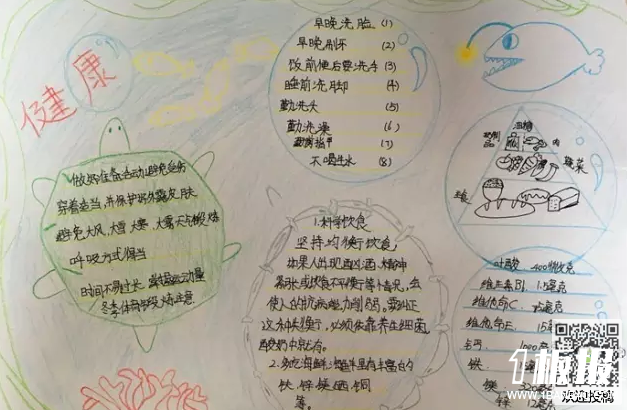 健康
早晚洗脸 (1)
早晚刷牙 (2)
饭前便后要洗手 (3)
睡前洗脚 (4)
勤洗头 (5)
勤洗澡 (6)
勤剪指甲 (7)
不喝生水 (8)
做好准备活动避免受伤
穿着适当,并保护好外露皮肤
避免大风,大雪,大寒,大雾天气锻炼
呼吸方式得当
时间不易过长
冬季体育锻炼注意
油糖
肉
蔬菜
1.科学饮食
坚持均衡饮食,
如果人的现 酗酒,精神
紧张或饮食不平衡等情况,会
使人的抗病能力削弱。要纠正
这种失衡,必须依靠养生细菌,
酸奶中就有。
2.多吃海鲜:海鲜里有丰富的
铁 锌 镁 硒 铜
等。
叶酸 400微克
维生素B1 1.5毫克
维他命C
维他命E 15毫
钙 1000
铁
镁
锌 12毫
1板报
欢迎投稿